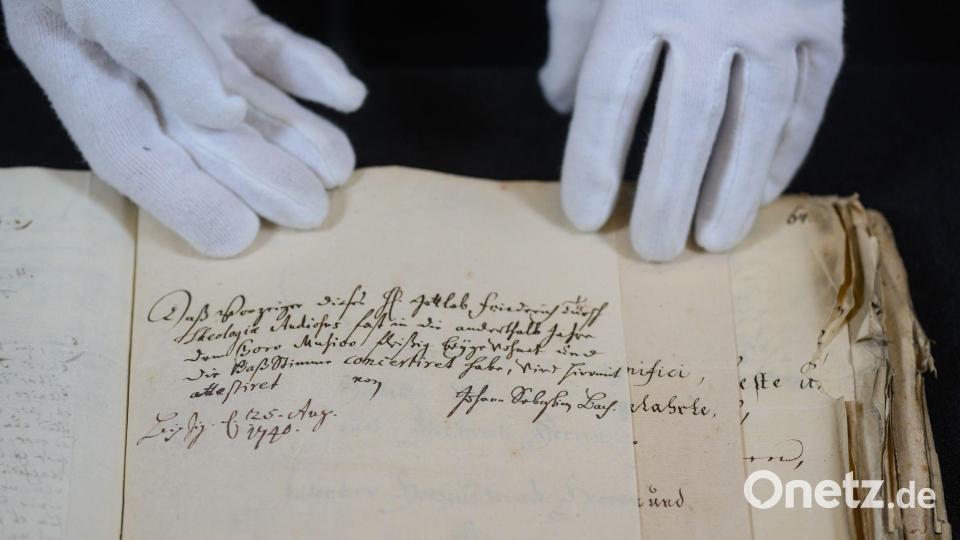 Daß Vorzeiger dieses H. Gottlob Friedrich Türch
Theologiæ Studiosus fast in die anderthalb Jahre
dem Choro Musico fleißig beygewohnet und
die Baß Stimme concertiret habe, wird hiermit
attestiret von
Johann Sebastian Bach.
Leipzig. 25. Aug.
1740.
64
nifici,
Rahrte,
und
Onetz.de